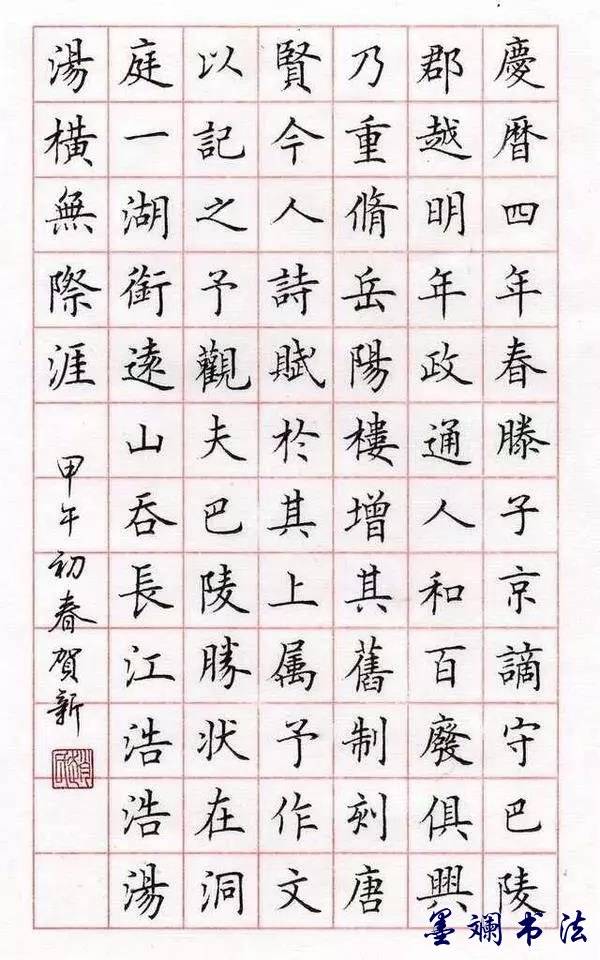 慶暦四年春滕子京謫守巴陵
郡越明年政通人和百廢俱興
乃重脩岳陽樓增其舊制刻唐
賢今人詩賦於其上属予作文
以記之予觀夫巴陵勝状在洞
庭一湖銜遠山吞長江浩浩湯
湯横無際涯
甲午初春賀新
墨斓书法